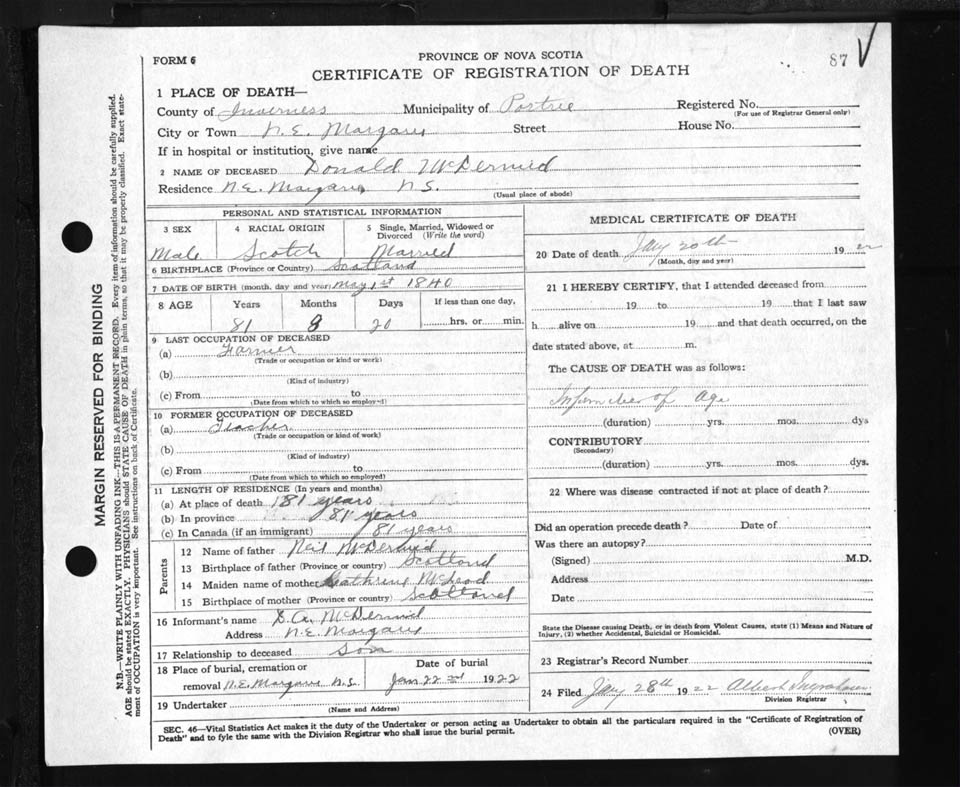 FORM 6
PROVINCE OF NOVA SCOTIA
87 V
CERTIFICATE OF REGISTRATION OF DEATH
1 PLACE OF DEATH—
County of Inverness Municipality of Portree Registered No.
(For use of Registrar General only)
City or Town N.E. Margaree Street House No.
If in hospital or institution, give name
2 NAME OF DECEASED Donald McDermid
Residence N.E. Margaree N.S.
(Usual place of abode)
PERSONAL AND STATISTICAL INFORMATION
3 SEX 4 RACIAL ORIGIN 5 Single, Married, Widowed or Divorced (Write the word)
Male Scotch Married
6 BIRTHPLACE (Province or Country) Scotland
7 DATE OF BIRTH (month, day and year) May 1st 1840
8 AGE Years Months Days If less than one day,
81 8 20 hrs. or min.
9 LAST OCCUPATION OF DECEASED
(a) Farmer
(Trade or occupation or kind or work)
(b)
(Kind of industry)
(c) From to
(Date from which to which so employed)
10 FORMER OCCUPATION OF DECEASED
(a) Teacher
(Trade or occupation or kind of work)
(b)
(Kind of industry)
(c) From to
(Date from which to which so employed)
11 LENGTH OF RESIDENCE (In years and months)
(a) At place of death 81 years
(b) In province 81 years
(c) In Canada (if an immigrant) 81 years
Parents
12 Name of father Neil McDermid
13 Birthplace of father (Province or country) Scotland
14 Maiden name of mother Cathrine McLeod
15 Birthplace of mother (Province or country) Scotland
16 Informant's name D.A. McDermid
Address N.E. Margaree
17 Relationship to deceased Son
18 Place of burial, cremation or Date of burial
removal N.E. Margaree N.S. Jan 22nd 1922
19 Undertaker
(Name and Address)
MEDICAL CERTIFICATE OF DEATH
20 Date of death Jany 20th 1922
(Month, day and year)
21 I HEREBY CERTIFY, that I attended deceased from
19 to 19 that I last saw
h alive on 19 and that death occurred, on the
date stated above, at m.
The CAUSE OF DEATH was as follows:
of Age
(duration) yrs. mos. dys
CONTRIBUTORY
(Secondary)
(duration) yrs. mos. dys.
22 Where was disease contracted if not at place of death?
Did an operation precede death? Date of
Was there an autopsy?
(Signed) M.D.
Address
Date
State the Disease causing Death, or in death from Violent Causes, state (1) Means and Nature of
Injury, (2) whether Accidental, Suicidal or Homicidal.
23 Registrar's Record Number
24 Filed Jany 28th 1922 Albert Ingraham
Division Registrar
SEC. 46—Vital Statistics Act makes it the duty of the Undertaker or person acting as Undertaker to obtain all the particulars required in the "Certificate of Registration of
Death" and to fyle the same with the Division Registrar who shall issue the burial permit.
(OVER)
MARGIN RESERVED FOR BINDING
N.B.—WRITE PLAINLY WITH UNFADING INK—THIS IS A PERMANENT RECORD. Every item of information should be carefully supplied.
AGE should be stated EXACTLY. PHYSICIANS should STATE CAUSE OF DEATH in plain terms, so that it may be properly classified. Exact state-
ment of OCCUPATION is very important. See instructions on back of Certificate.